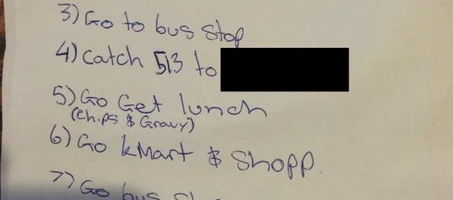 3) Go to bus stop
4) Catch 513 to
5) Go Get lunch
(Chips & Gravy)
6) Go kMart & Shopp.
7) Go bus